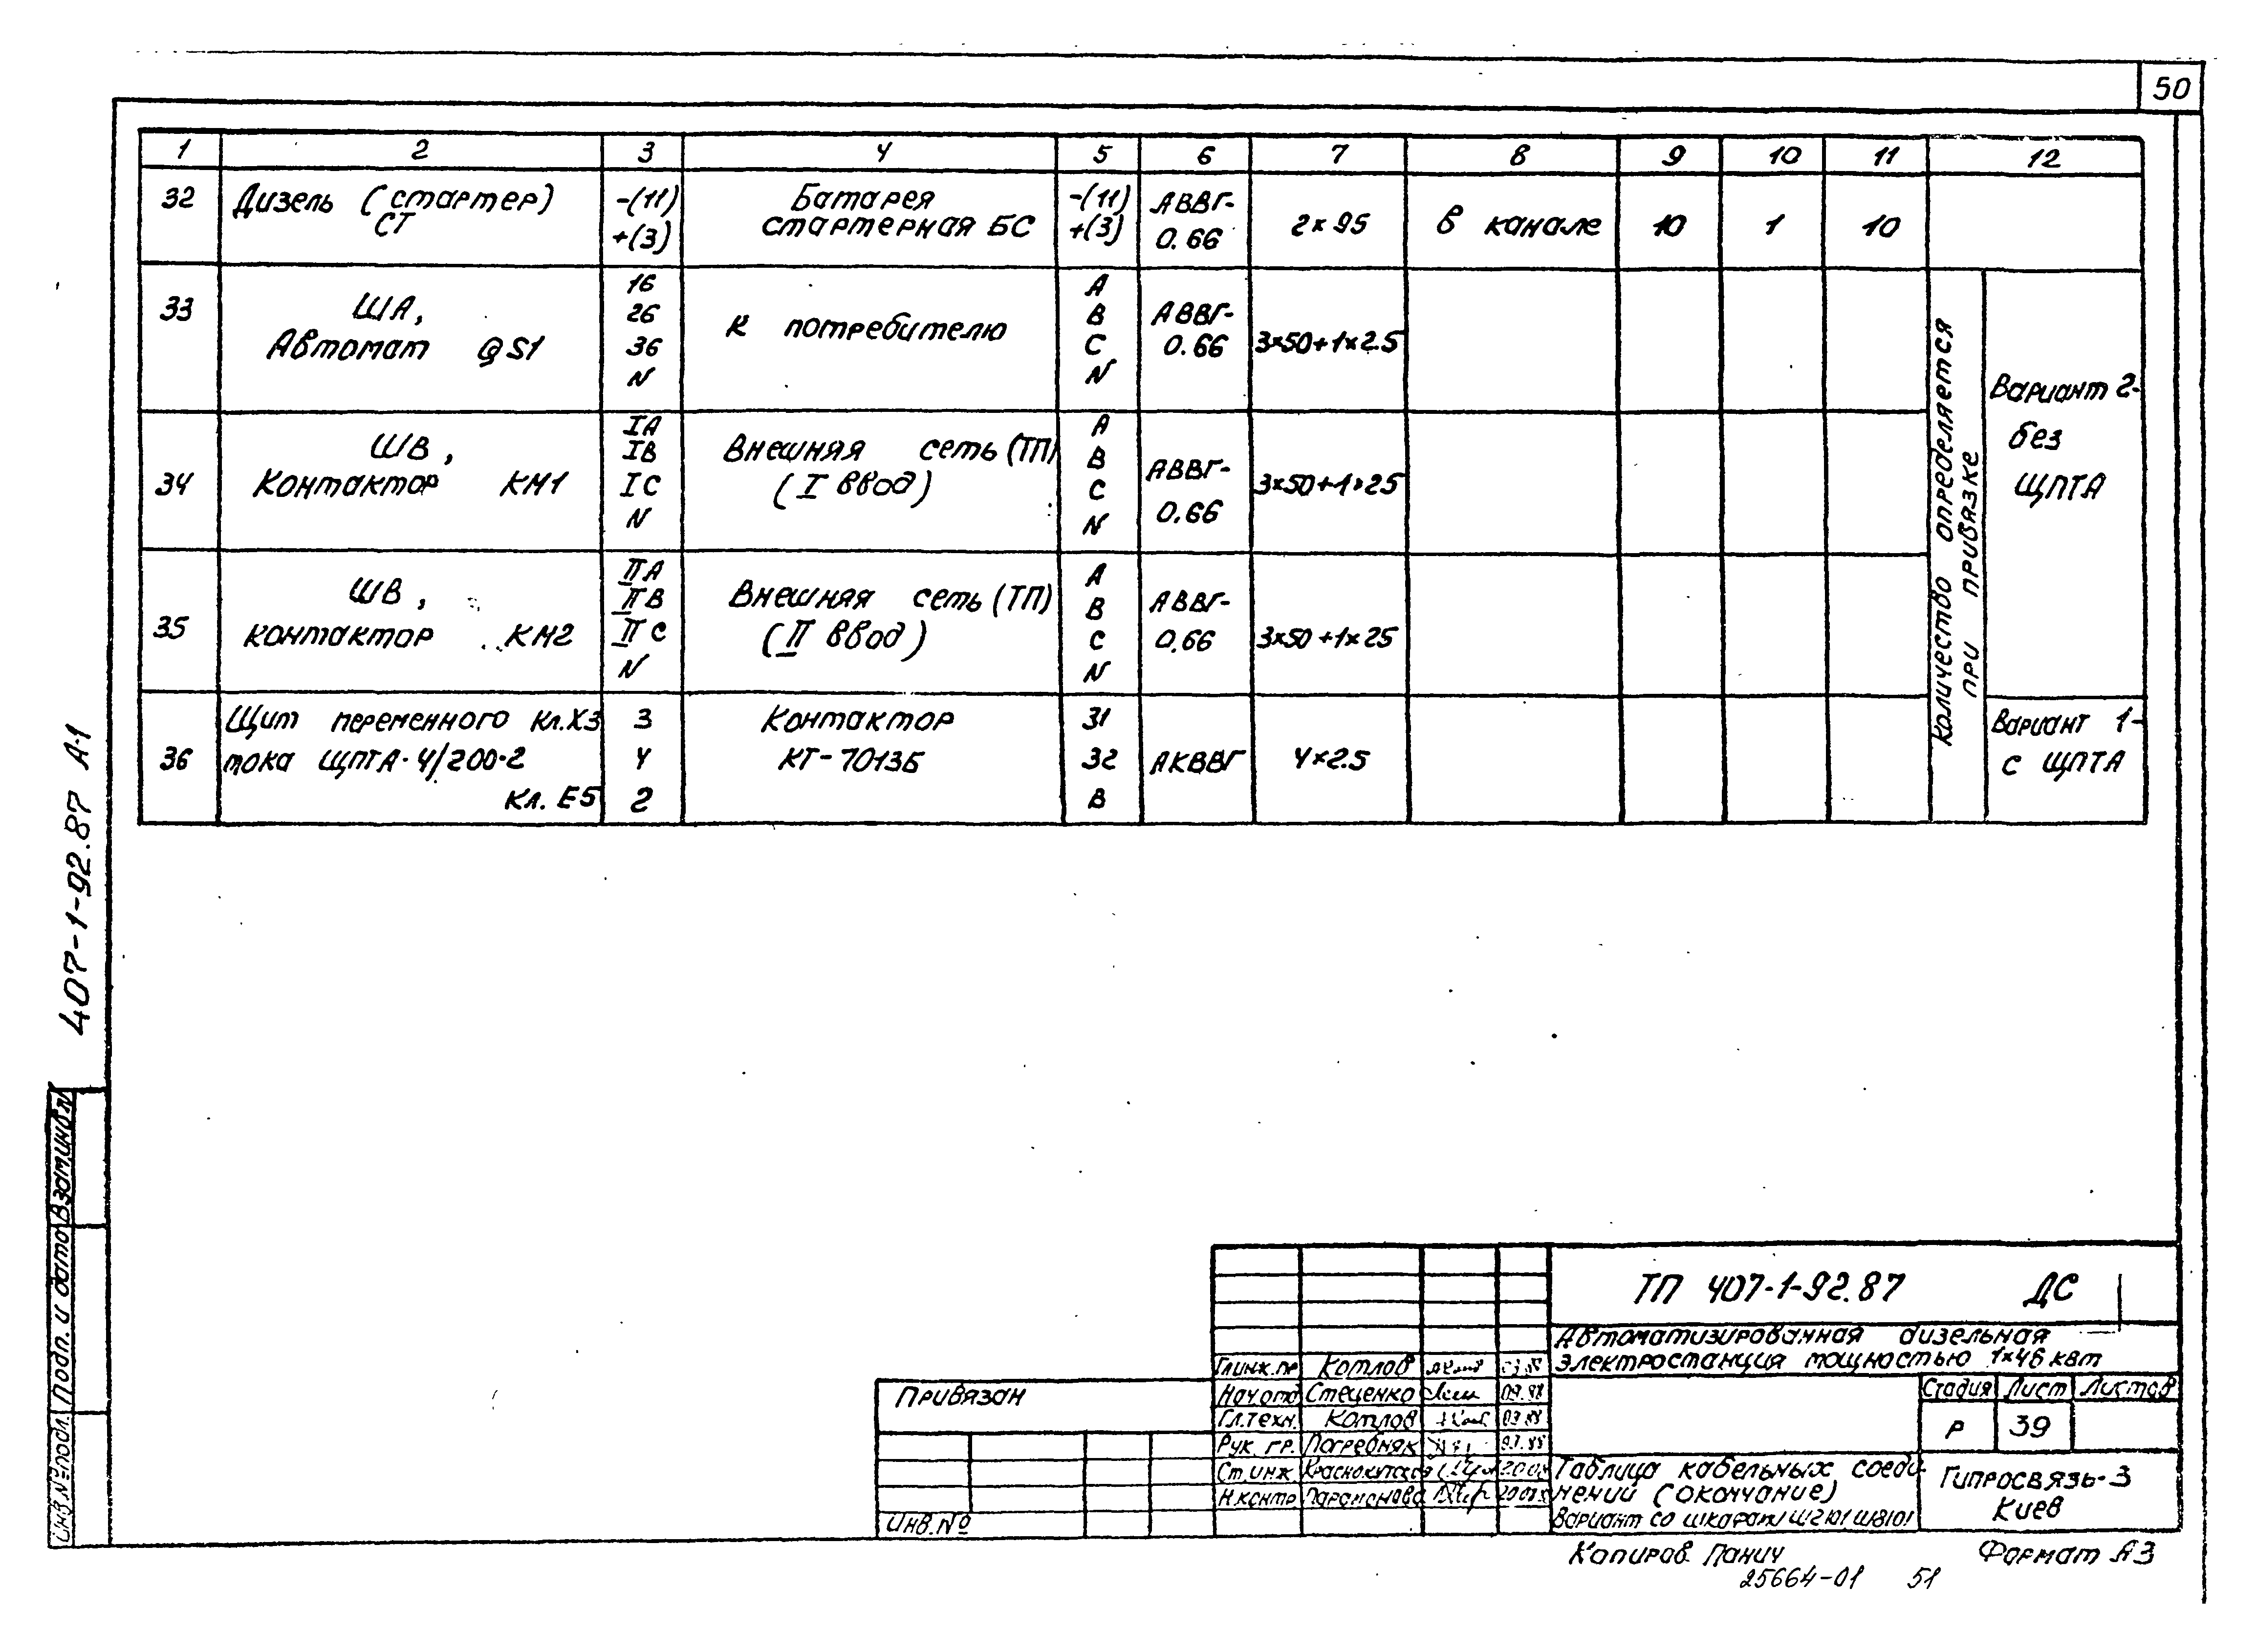 50
1 2 3 4 5 6 7 8 9 10 11 12
32 Дизель (стартер) СТ -(11) +(3) Батарея стартерная БС -(11) +(3) АВВГ-0.66 2×95 в канале 10 1 10
33 ША, Автомат QS1 16 26 36 N К потребителю А В С N АВВГ-0.66 3×50+1×2.5
34 ШВ, Контактор КМ1 IА IВ IС N Внешняя сеть (ТП) (I ввод) А В С N АВВГ-0.66 3×50+1×25
35 ШВ, контактор КМ2 IIА IIВ IIС N Внешняя сеть (ТП) (II ввод) А В С N АВВГ-0.66 3×50+1×25
36 Щит переменного Кл.Х3 тока ЩПТА-4/200-2 Кл. Е5 3 4 2 Контактор КТ-7013Б 31 32 В АКВВГ 4×2.5
Количество определяется
при привязке
Вариант 2-
без
ЩПТА
Вариант 1-
с ЩПТА
407-1-92.87 А-1
Взам.инв.№
Подп. и дата
Инв.№подл.
ТП 407-1-92.87 ДС
Автоматизированная дизельная
электростанция мощностью 1×48 квт
Гл.инж.пр Котлов
Нач.отд Стеценко 09.88
Гл.техн. Котлов 03.88
Рук. гр. Погребняк
Ст.инж. Краснокутская
Н.контр Парамонова
Привязан
Инв.№
Стадия Лист Листов
Р 39
Таблица кабельных соеди-
нений (окончание)
Вариант со шкафами Ш2101 Ш8101
Гипросвязь-3
Киев
Копиров. Панич
Формат А3
25664-01 51